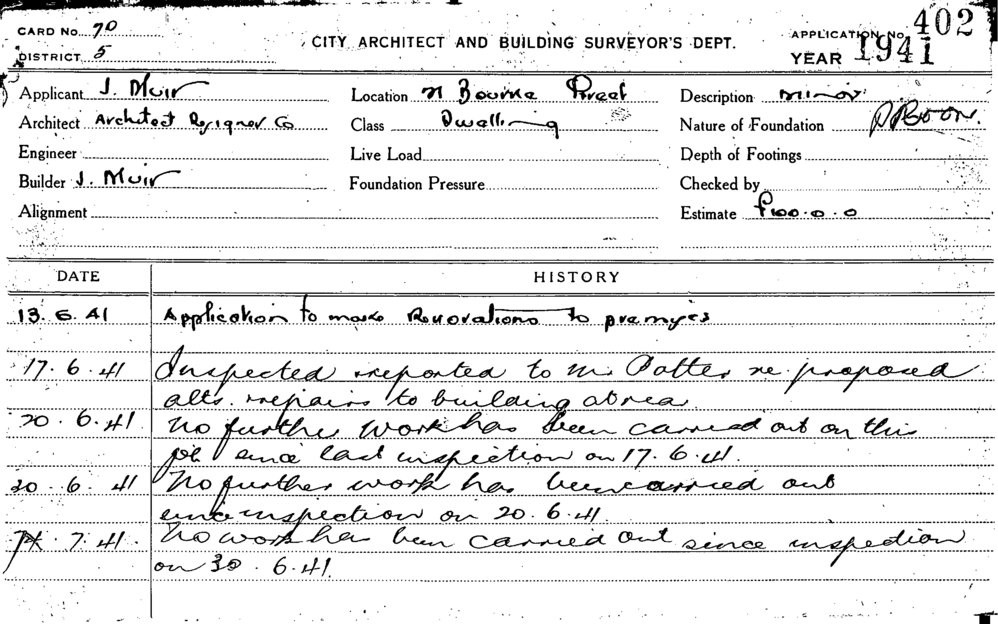 CARD No. 70
DISTRICT 5
CITY ARCHITECT AND BUILDING SURVEYOR'S DEPT.
APPLICATION No. 402
YEAR 1941
Applicant J. Muir
Location 21 Bourke Street
Description minor
Architect Architect Designer Co
Class Dwelling
Nature of Foundation
Engineer
Live Load
Depth of Footings
Builder J. Muir
Foundation Pressure
Checked by
Alignment
Estimate £100.0.0
DATE HISTORY
13.6.41 Application to make Renovations to premises
17.6.41 Inspected & reported to Mr Potter re proposed
alts. & repairs to building at rear
20.6.41 No further work has been carried out on this
job since last inspection on 17.6.41.
30.6.41 No further work has been carried out
since inspection on 20.6.41.
7.41. No work has been carried out since inspection
on 30.6.41.